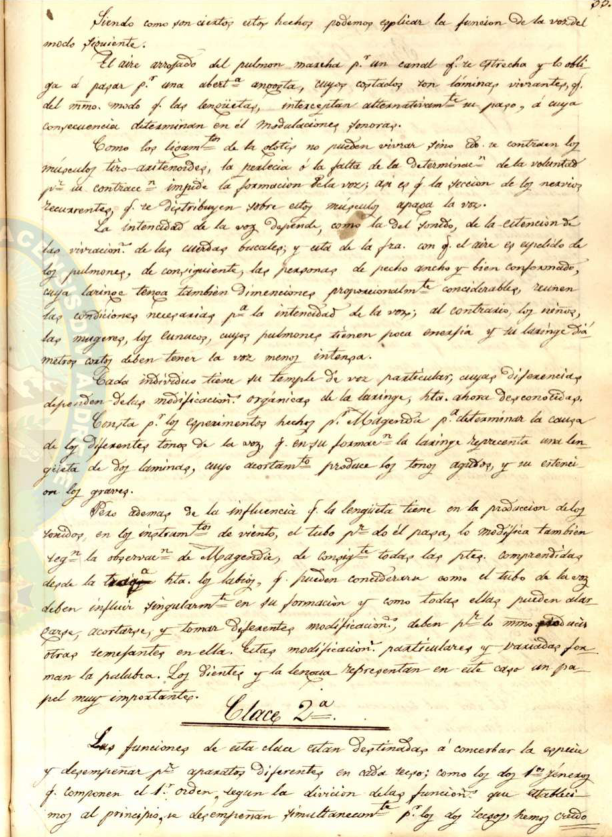 Siendo como son ciertos estos hechos podemos esplicar la funcion de la voz del
modo siguiente.
El aire arrojado del pulmon marcha p.r un canal q.e se estrecha y lo obli
ga á pasar p.r una abert.a angosta, cuyos costados son láminas vivrantes, q.
del mmo. modo q. las lengüetas, interceptan alternativam.te su paso, á cuya
consecuencia determinan en él modulaciones sonoras.
Como los ligam.tos de la glotis no pueden vivrar sino cdo. se contraen los
músculos tiro-aritenoides, la perlecia ó la falta de la determinac.n de la voluntad
p.a su contracc.n impide la formacion de la voz; asi es q. la seccion de los nervios
recurrentes q.e se distribuyen sobre estos musculos apaga la voz.
La intencidad de la voz depende, como la del sonido, de la estencion de
las vivracion.s de las cuerdas bucales; y esta de la fza. con q. el aire es espelido de
los pulmones, de consiguiente, las personas de pecho ancho y bien conformado,
cuya laringe tenga también dimenciones proporcionalm.te conciderables, reunen
las condiciones necesarias p.a la intencidad de la voz; al contrario, los niños,
las mugeres, los eunucos, cuyos pulmones tienen poca enerjia y su laringe diá
metros cortos deben tener la voz menos intensa.
Cada individuo tiene su temple de voz particular, cuyas diferencias
dependen de las modificacion.s orgánicas de la laringe, hta. ahora desconocidas.
Consta p.r los esperimentos hechos p.r Magendia p.a determinar la causa
de los diferentes tonos de la voz, q. en su formac.n la laringe representa una len
güeta de dos laminas, cuyo acortam.to produce los tonos agudos, y su estenci
on los graves.
Pero ademas de la influencia q. la lengüeta tiene en la producion de los
sonidos, en los instrum.tos de viento, el tubo p.r do él pasa, lo modifica también
seg.n la observac.n de Magendia, de consig.te todas las ptes. comprendidas
desde la hta. los labios, q. pueden conciderarse como el tubo de la voz
deben influir singularm.te en su formacion y como todas ellas pueden alar
garse, acortarse, y tomar diferentes modificacion.s deben p.r lo mmo producir
otras semejantes en ella. Estas modificacion.s particulares y variadas for
man la palabra. Los dientes y la lengua representan en este caso un pa
pel muy importantes.
Clace 2.a
Las funciones de esta clace estan destinadas á concerbar la especie
y desempeñar p.r aparatos diferentes en cada secso; como los dos 1.os jéneros
q. componen el 1.r orden, segun la divicion de las funcion.s que estableci
mos al principio, se desempeñan simultaneam.te p.r los dos secsos hemos creido